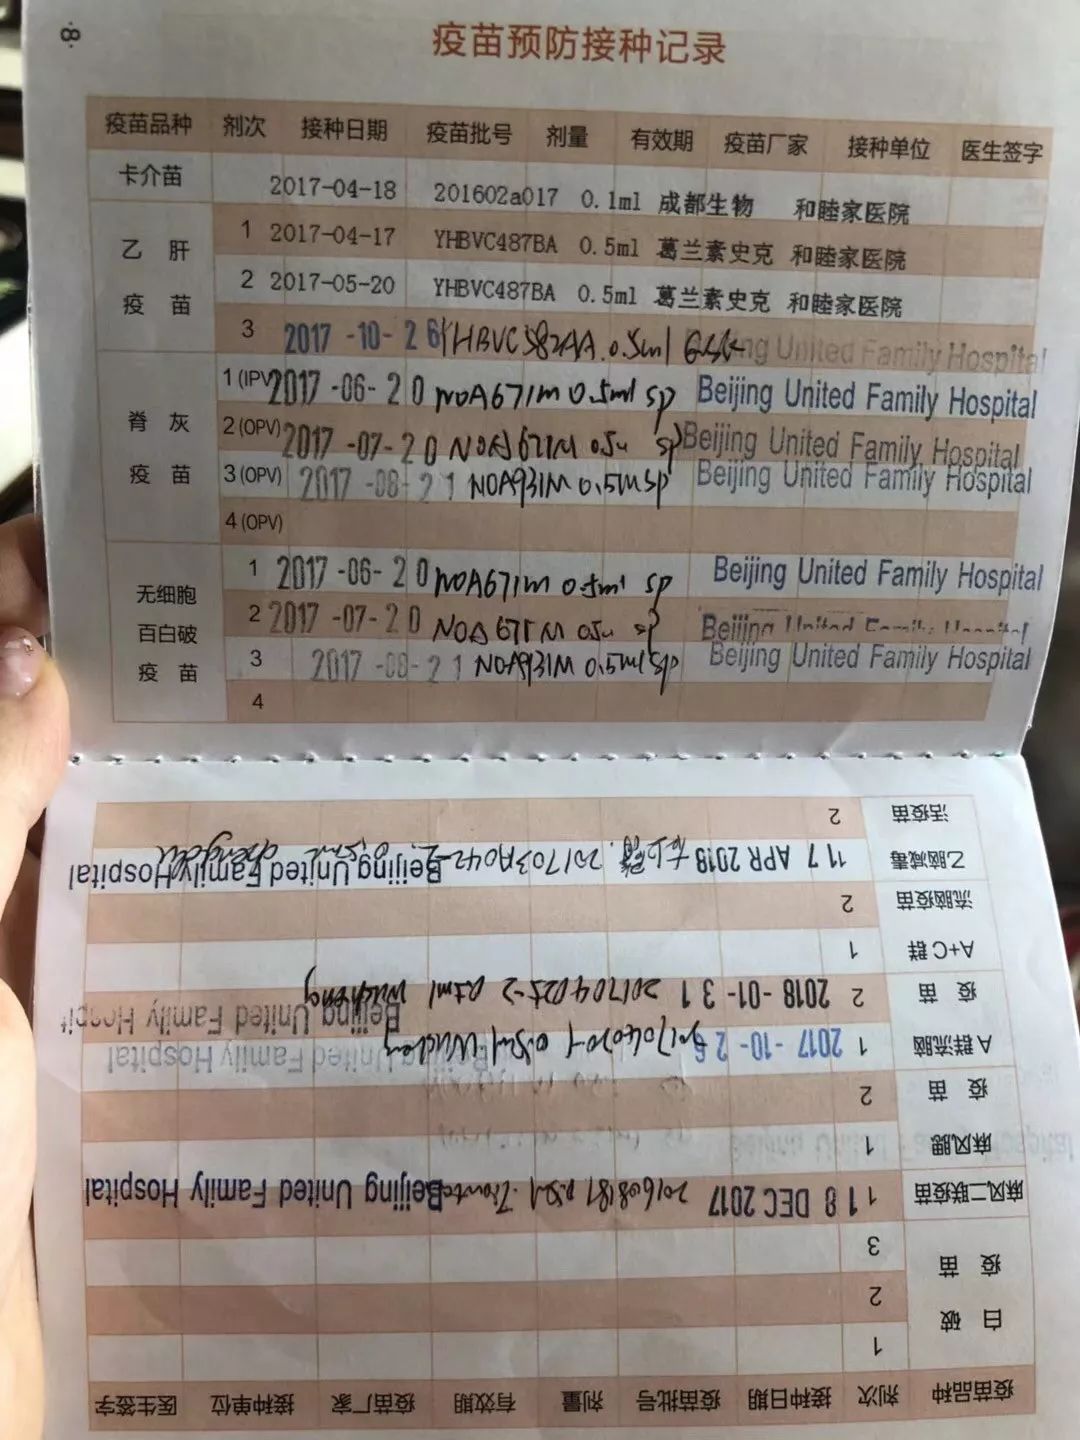 ·8·
疫苗预防接种记录
疫苗品种 剂次 接种日期 疫苗批号 剂量 有效期 疫苗厂家 接种单位 医生签字
卡介苗 2017-04-18 201602a017 0.1ml 成都生物 和睦家医院
乙肝疫苗 1 2017-04-17 YHBVC487BA 0.5ml 葛兰素史克 和睦家医院
2 2017-05-20 YHBVC487BA 0.5ml 葛兰素史克 和睦家医院
3 2017-10-26 YHBVC582AA 0.5ml GSK United Family Hospital
脊灰疫苗 1(IPV) 2017-06-20 NOA671M 0.5ml SP Beijing United Family Hospital
2(OPV) 2017-07-20 NOA671M SP Beijing United Family Hospital
3(OPV) 2017-08-21 NOA931M 0.5ml SP Beijing United Family Hospital
4(OPV)
无细胞百白破疫苗 1 2017-06-20 NOA671M 0.5ml SP Beijing United Family Hospital
2 2017-07-20 NOA671M SP Beijing United Family Hospital
3 2017-08-21 NOA931M 0.5ml SP Beijing United Family Hospital
4
疫苗品种 剂次 接种日期 疫苗批号 剂量 有效期 疫苗厂家 接种单位 医生签字
白破疫苗 1
2
3
麻风二联疫苗 1 18 DEC 2017 201608187 0.5ml Beijing United Family Hospital
麻风腮疫苗 1
2
A群流脑疫苗 1 2017-10-26 Beijing United Family Hospital
2 2018-01-31 Beijing United Family Hospit
A+C群流脑疫苗 1
2
乙脑减毒活疫苗 1 17 APR 2018 Beijing United Family Hospital
2